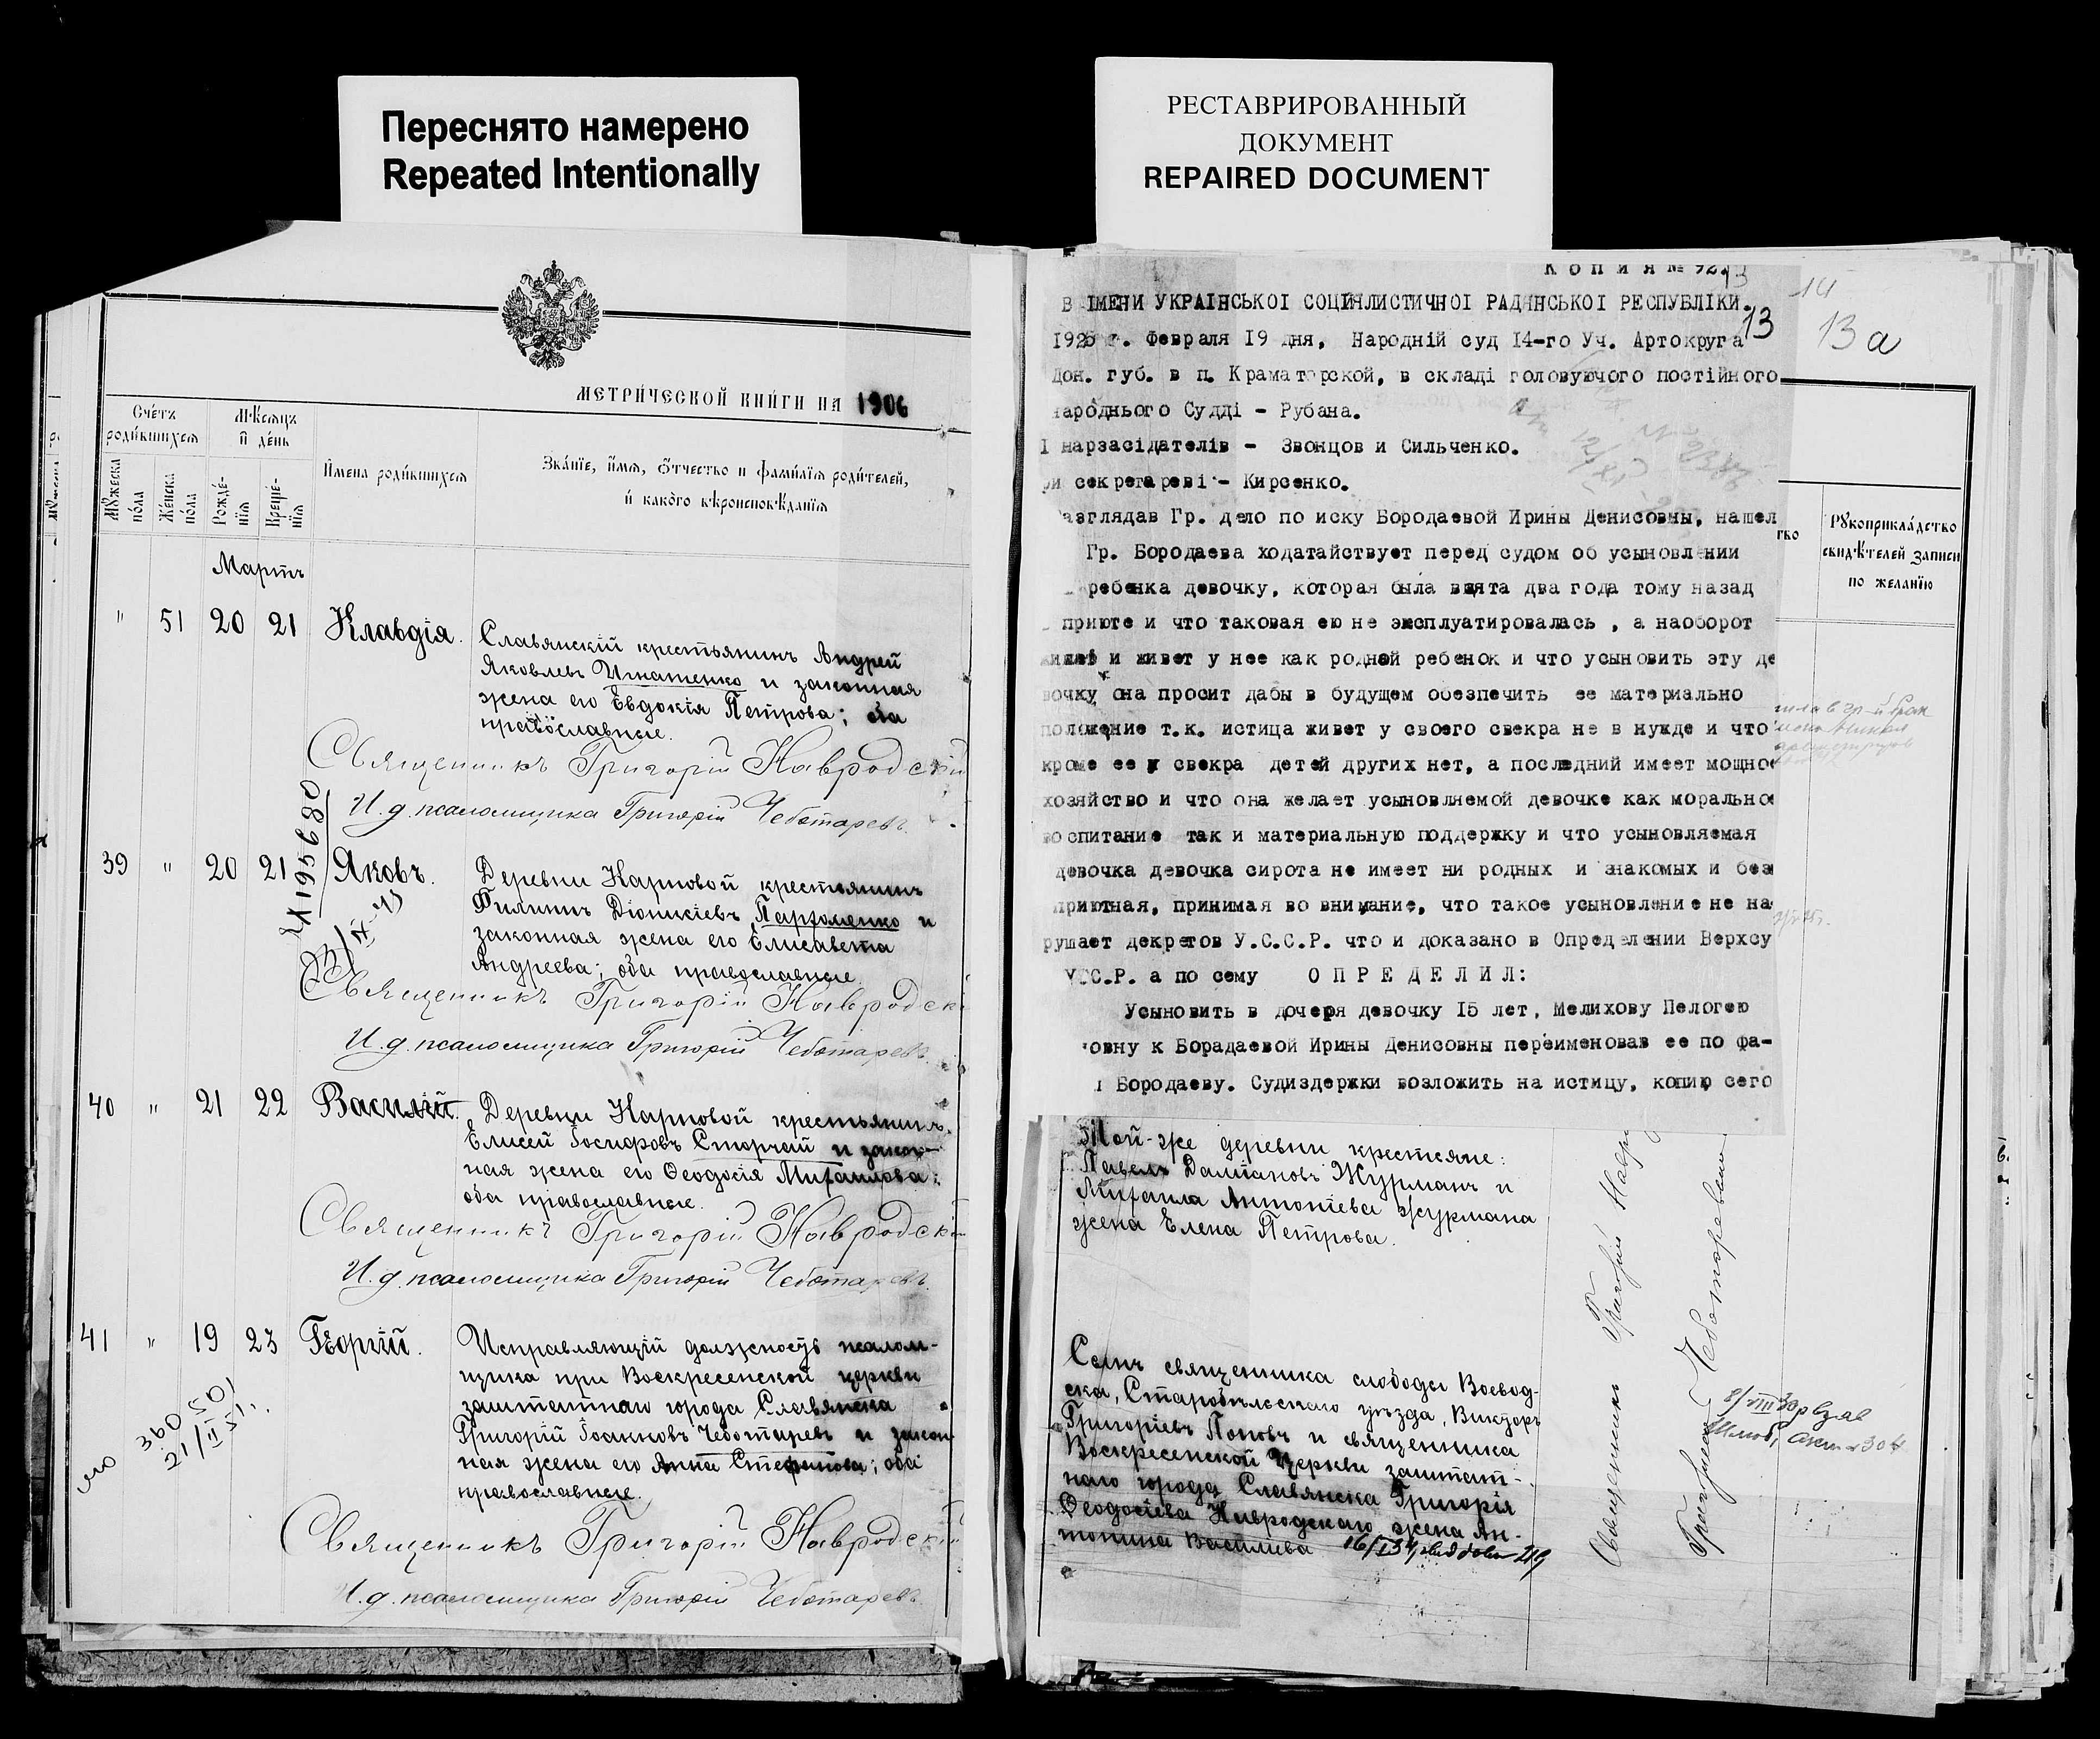 Переснято намерено
Repeated Intentionally
РЕСТАВРИРОВАННЫЙ
ДОКУМЕНТ
REPAIRED DOCUMENT
МЕТРИ́ЧЕСКОЙ КНИ́ГИ НА 1906
Сче́тъ роди́вшихсѧ
Мѣ́сѧцъ и҆ де́нь
И҆мена роди́вшихсѧ
Зва́нїе, и҆́мѧ, ѻ҆́тчество и фами́лїѧ роди́телей,
и҆ како́го вѣроисповѣ́данїѧ
Мꙋ́жеска по́ла
Же́нска по́ла
Рожде́-нїѧ
Креще́-нїѧ
Мартъ
" 51 20 21 Клавдія.
Славянскій крестьянинъ Андрей
Яковлевъ Игнатенко и законная
жена его Евдокія Петрова; оба
православные.
Священникъ Григорій Навродскій
И. д. псаломщика Григорій Чеботаревъ.
39 " 20 21 Яковъ.
Деревни Карповой крестьянинъ
Филиппъ Діонисіевъ Пархоменко и
законная жена его Елисавета
Андреева; оба православные.
Священникъ Григорій Навродскі
И. д. псаломщика Григорій Чеботаревъ.
40 " 21 22 Василій.
Деревни Карповой крестьянинъ
Елисей Іосифовъ Сторчай и закон-
ная жена его Ѳеодосія Михаилова;
оба православные.
Священникъ Григорій Навродскі
И. д. псаломщика Григорій Чеботаревъ.
41 " 19 23 Георгій.
Исправляющій должность псалом-
щика при Воскресенской церкви
заштатнаго города Славянска
Григорій Іоанновъ Чеботаревъ и закон-
ная жена его Анна Стефанова; оба
православные.
Священникъ Григорій Навродскій
И. д. псаломщика Григорій Чеботаревъ.
360501
21/II 51
КОПИЯ №
13
14
13 а
В ІМЕНИ УКРАІНСЬКОІ СОЦІЯЛИСТИЧНОІ РАДЯНСЬКОІ РЕСПУБЛІКИ.
г. Февраля 19 дня, Народній суд 14-го Уч. Артокруга
Дон. губ. в п. Краматорской, в складі головуючого постійного
ароднього Судді - Рубана.
І нарзасідателів - Звонцов и Сильченко.
ри секретареві - Кирсенко.
азглядав Гр. дело по иску Бородаевой Ирины Денисовны, нашел
Гр. Бородаева ходатайствует перед судом об усыновлении
ребенка девочку, которая была взята два года тому назад
приюте и что таковая ею не эксплуатировалась , а наоборот
и живет у нее как родной ребенок и что усыновить эту де
вочку она просит дабы в будущем обезпечить ее материально
положение т.к. истица живет у своего свекра не в нужде и что
кроме ее и свекра детей других нет, а последний имеет мощное
хозяйство и что она желает усыновляемой девочке как морально
воспитание так и материальную поддержку и что усыновляемая
девочка девочка сирота не имеет ни родных и знакомых и без
приютная, принимая во внимание, что такое усыновление не на
рушает декретов У.С.С.Р. что и доказано в Определении Верхсу
УСС.Р. а по сему О П Р Е Д Е Л И Л:
Усыновить в дочеря девочку 15 лет, Мелихову Пелогею
овну к Борадаевой Ирины Денисовны переименовав ее по фа-
Бородаеву. Судиздержки возложить на истицу, копию сего
Рꙋкоприкла́дство
свидѣ́телей записи
по жела́нїю
Той-же деревни крестьяне:
Павелъ Даміановъ Журманъ и
Михаила Антоніева Журмана
жена Елена Петрова.
Сынъ священника слободы Воевод-
ска, Старобѣльскаго уѣзда, Викторъ
Григоріевъ Поповъ и священника
Воскресенской Церкви заштат-
наго города Славянска Григорія
Ѳеодосіева Навродскаго жена Ан-
тонина Васильева
Священникъ Григорій Навро
Григорій Чеботаревъ